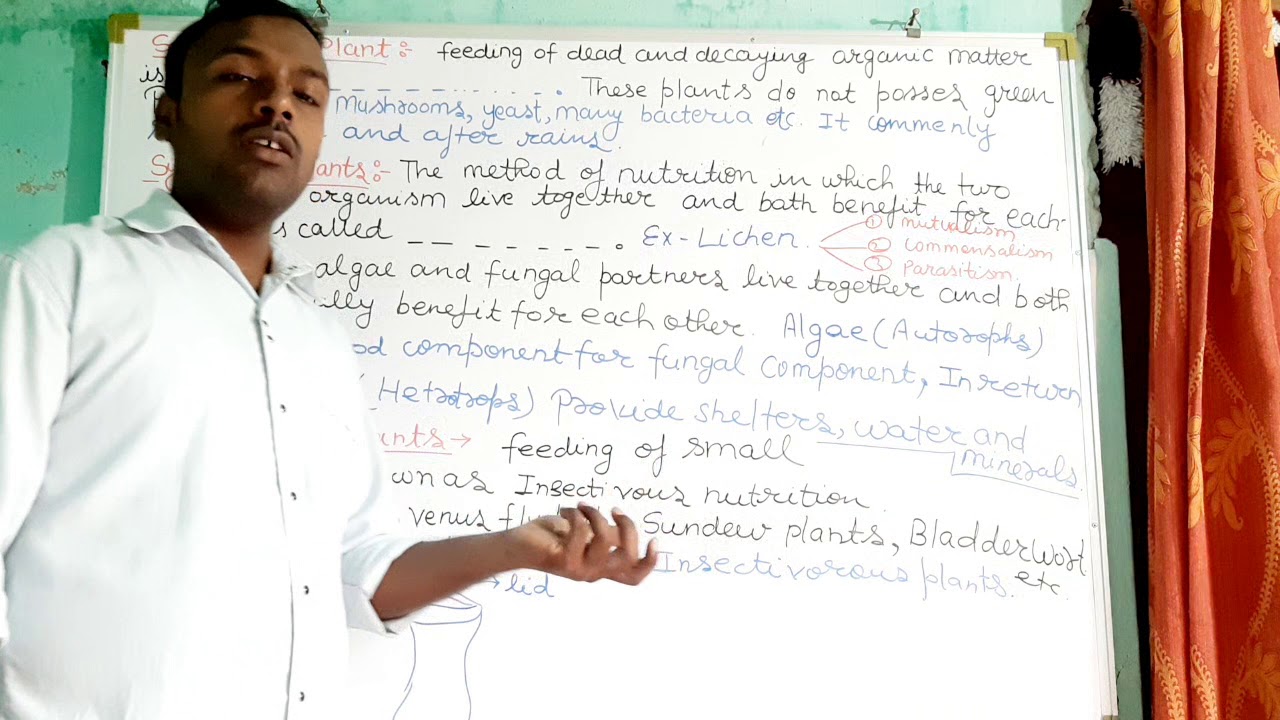 Plant:- feeding of dead and decaying organic matter
is _ _ _ _ _ _ _ _ _ _ _ . These plants do not posses green
Mushrooms, yeast, many bacteria etc. It commenly
and after rains.
ants:- The method of nutrition in which the two
organism live together and bath benefit for each-
s called _ _ _ _ _ _ _ . Ex-Lichen.
① mutualism
② Commensalism
③ Parasitism.
algae and fungal partners live together and both
ally benefit for each other. Algae (Autorophs)
od component for fungal component, In return
(Hetrotrops) Provide shelters, water and
minerals.
ants → feeding of small
wn as Insectivous nutrition.
venus fly Sundew plants, Bladderwort
etc.
Insectivorous plants.
→ lid